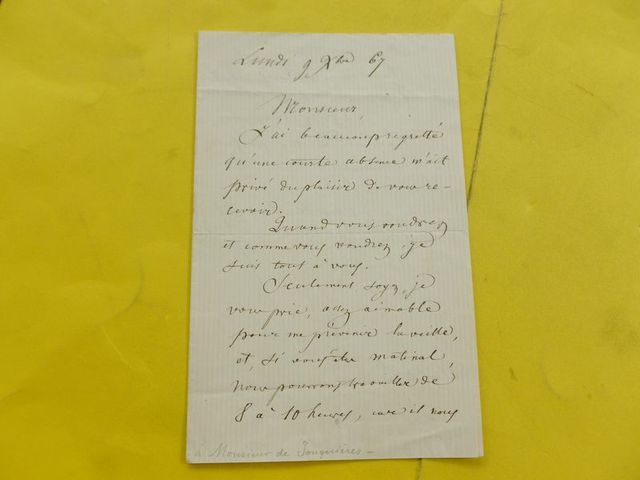 Lundi 9 Xbre 67
Monsieur,
J'ai beaucoup regretté
qu'une courte absence m'ait
privé du plaisir de vous re-
cevoir.
Quand vous voudrez
et comme vous voudrez je
suis tout à vous.
Seulement soyez, je
vous prie, assez aimable
pour me prévenir la veille,
et, si vous êtes matinal,
nous pourrons travailler de
8 à 10 heures, car il nous
à Monsieur de Jonquières —